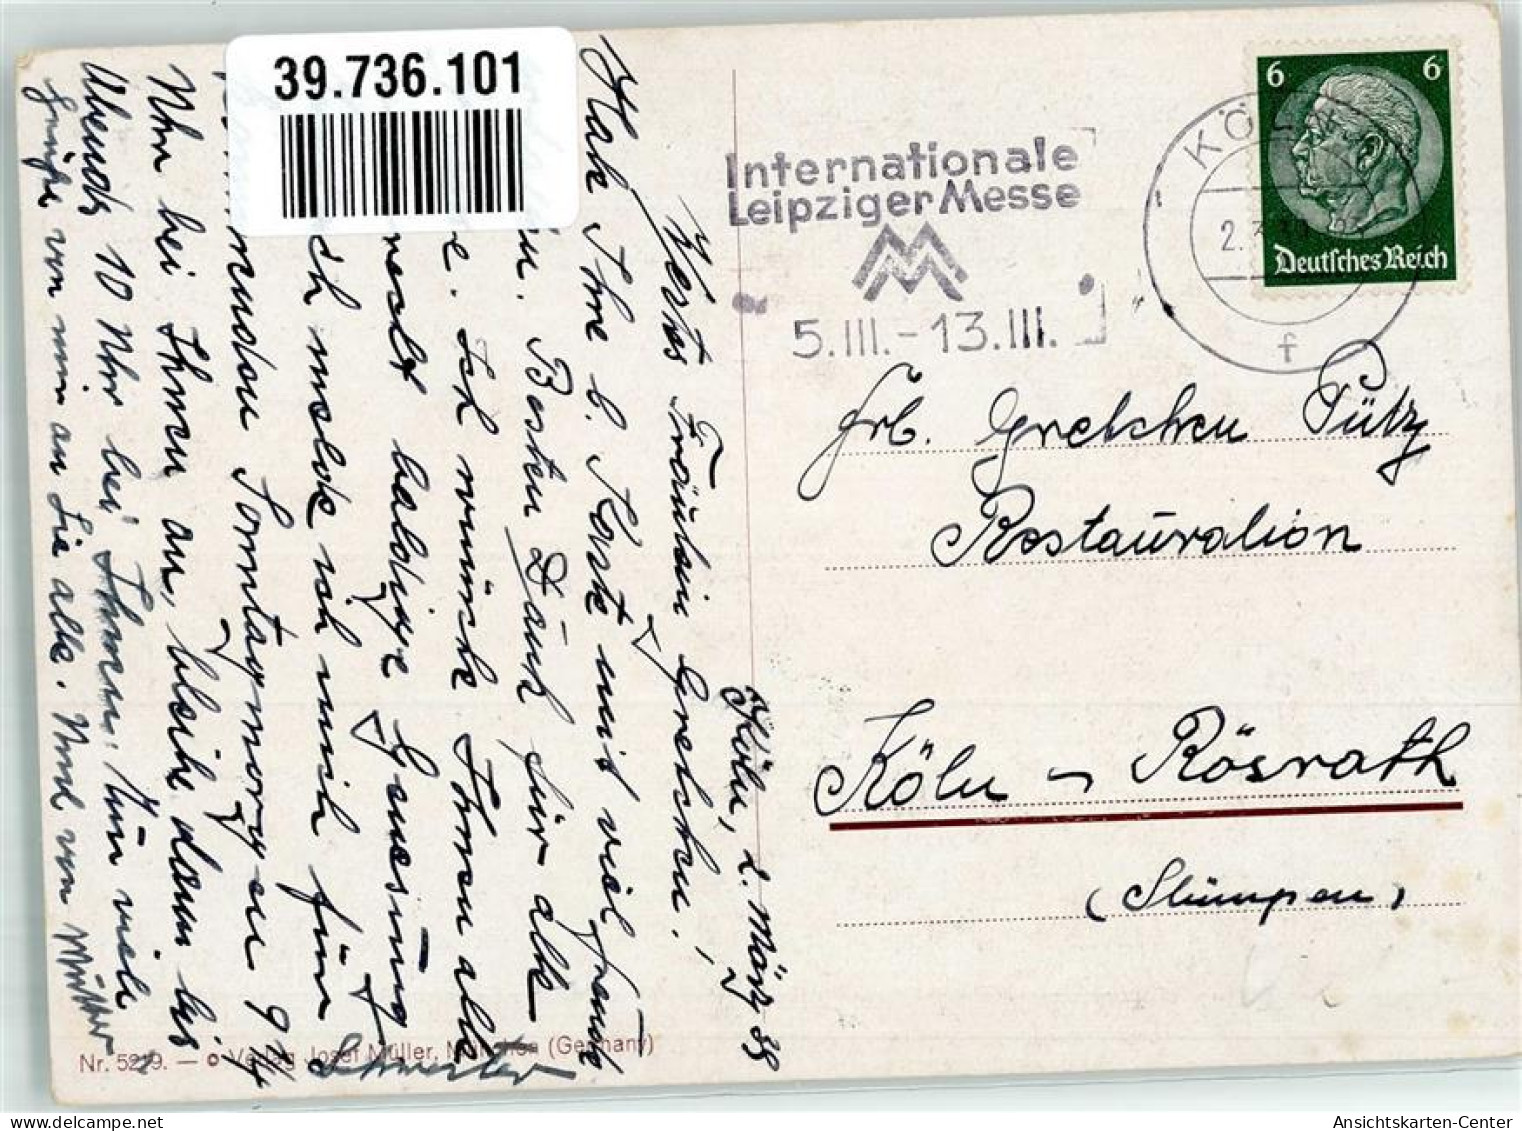 39.736.101
Internationale
Leipziger Messe
5.III.-13.III.
KÖLN
2.3.
f
6 6
Deutsches Reich
Frl. Gretchen Pütz
Restauration
Köln - Rösrath
(Stümpen)
Köln, 2. März 39
Wertes Fräulein Gretchen!
Hab Ihre l. Karte mit viel Freude
Besten Dank für alle
Ich wünsche Ihnen alle
recht baldige Genesung
ich melde mich für
Sonntagmorgen 9 1/4
Uhr bei Ihnen an, bleibe dann bis
Abends 10 Uhr bei Ihnen. Nun viele
Grüße von mir an Sie alle. Und von Mutter
Schwester
Nr. 5219. — © Verlag Josef Müller, München (Germany)
Ansichtskarten-Center